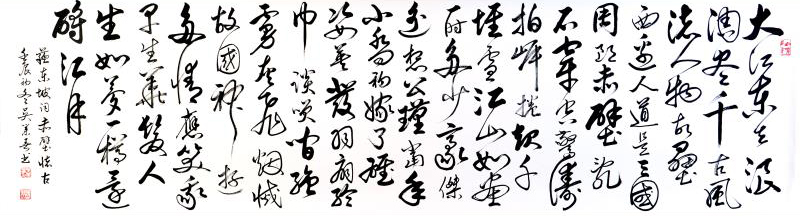 大江东去浪
淘尽千古风
流人物故垒
西边人道是三國
周郎赤壁乱
石穿空驚涛
拍岸捲起千
堆雪江山如画
一时多少豪傑
遥想公瑾當年
小乔初嫁了雄
姿英發羽扇纶
巾谈笑间强
虏灰飛烟滅
故國神游
多情應笑我
早生華髮人
生如夢一樽还
酹江月
蘇东坡词赤壁懷古
壬辰初冬吴书